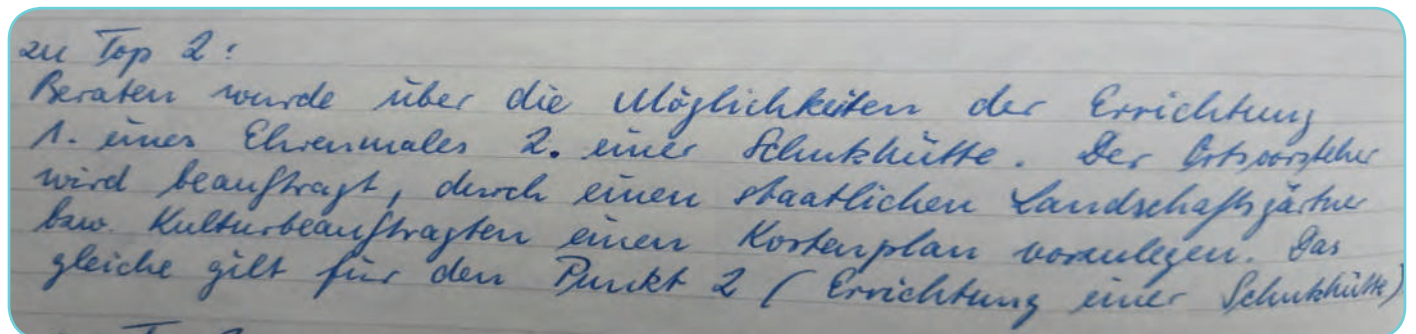 zu Top 2:
Beraten wurde über die Möglichkeiten der Errichtung
1. eines Ehrenmales 2. einer Schutzhütte. Der Ortsvorsteher
wird beauftragt, durch einen staatlichen Landschaftsgärtner
bzw. Kulturbeauftragten einen Kostenplan vorzulegen. Das
gleiche gilt für den Punkt 2 (Errichtung einer Schutzhütte)